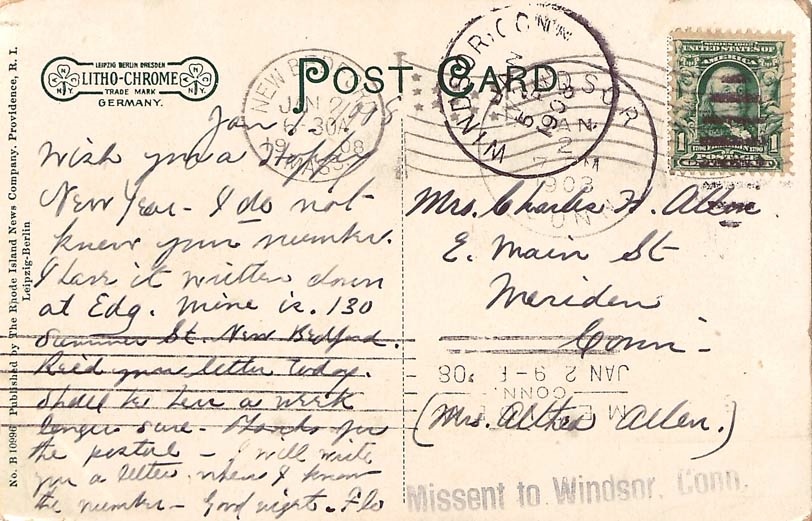 LEIPZIG BERLIN DRESDEN
LITHO-CHROME
TRADE MARK
GERMANY.
N.Y.
N.Y.
POST CARD
NEW BEDFORD
JAN 2
6-30A
1908
MASS.
WINDSOR, CONN.
1908
WINDSOR
JAN
2
7 M
1908
CONN.
SERIES 1902
UNITED STATES OF AMERICA
1 1
Jan. 1, 1908
Wish you a Happy
New Year - I do not
know your number.
I have it written down
at Edg. Mine is. 130
Summer St. New Bedford.
Rec'd your letter today.
Shall be here a week
longer sure - Thanks for
the postal - I will write
you a letter when I know
the number - Good night. Flo
Mrs. Charles H. Allen.
E. Main St
Meriden
Conn -
(Mrs. Althea Allen.)
JAN 2 9-P '08
CONN.
Missent to Windsor, Conn.
No. B 10996 Published by The Rhode Island News Company, Providence, R. I.
Leipzig-Berlin